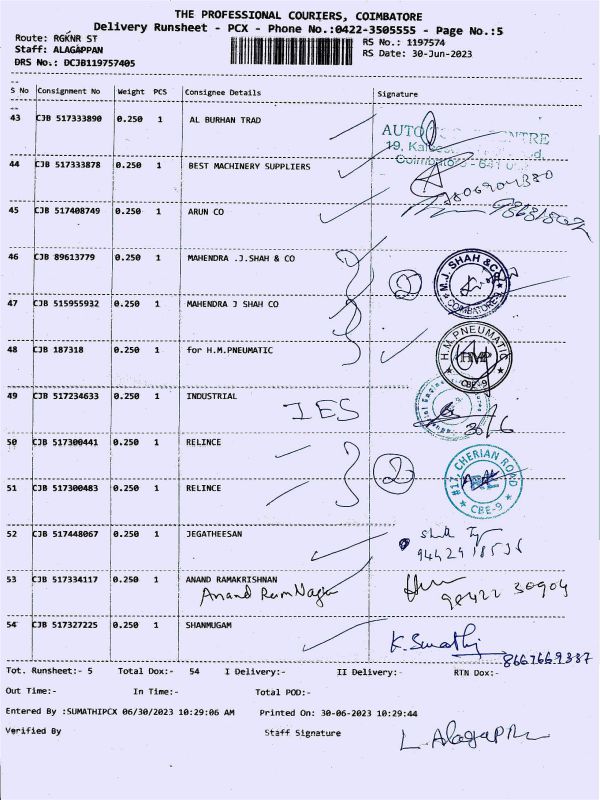 THE PROFESSIONAL COURIERS, COIMBATORE
Delivery Runsheet - PCX - Phone No.:0422-3505555 - Page No.:5
Route: RGKNR ST
RS No.: 1197574
Staff: ALAGAPPAN
RS Date: 30-Jun-2023
DRS No.: DCJB119757405
S No Consignment No Weight PCS Consignee Details Signature
43 CJB 517333890 0.250 1 AL BURHAN TRAD
AUTO
19,
Coimbatore - 641
44 CJB 517333878 0.250 1 BEST MACHINERY SUPPLIERS
45 CJB 517408749 0.250 1 ARUN CO
46 CJB 89613779 0.250 1 MAHENDRA .J.SHAH & CO
2
M.J. SHAH & CO
COIMBATORE
47 CJB 515955932 0.250 1 MAHENDRA J SHAH CO
48 CJB 187318 0.250 1 for H.M.PNEUMATIC
H.M.PNEUMATIC
HMP
CBE-9
49 CJB 517234633 0.250 1 INDUSTRIAL
IES
30/6
50 CJB 517300441 0.250 1 RELINCE
2
#17, CHERIAN ROAD
CBE-9
51 CJB 517300483 0.250 1 RELINCE
52 CJB 517448067 0.250 1 JEGATHEESAN
53 CJB 517334117 0.250 1 ANAND RAMAKRISHNAN
Anand Ram Nagar
98422 30904
54 CJB 517327225 0.250 1 SHANMUGAM
K. Sumathi
8667669387
Tot. Runsheet:- 5 Total Dox:- 54 I Delivery:- II Delivery:- RTN Dox:-
Out Time:- In Time:- Total POD:-
Entered By :SUMATHIPCX 06/30/2023 10:29:06 AM Printed On: 30-06-2023 10:29:44
Verified By Staff Signature